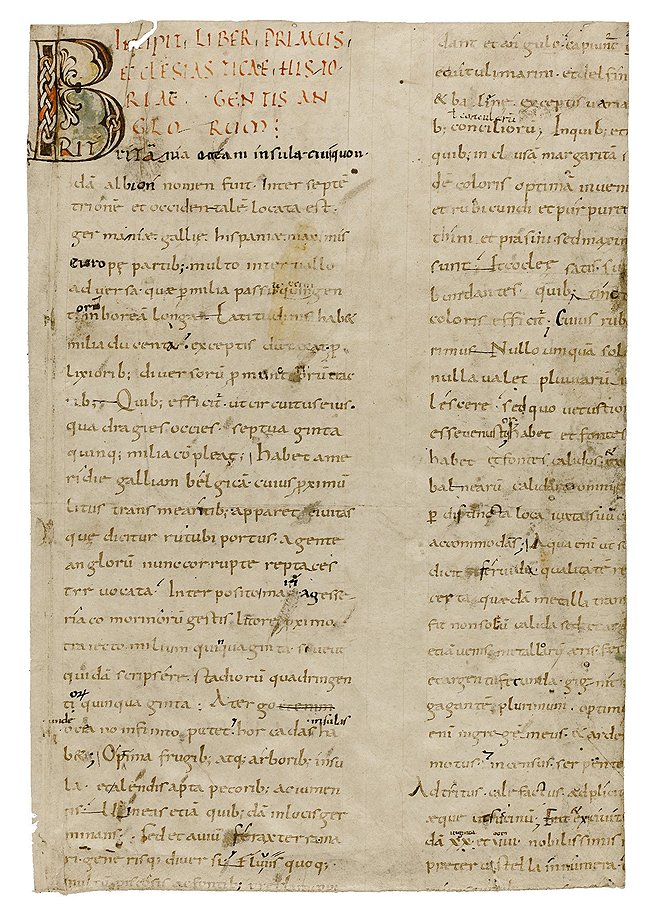 INCIPIT LIBER PRIMUS
ECCLESIASTICAE HISTO
RIAE GENTIS AN
GLORUM
BRIT
BRITTANIA oceani insula cui quon
dā albion nomen fuit. Inter septē
trionē et occidentalē locata est.
germaniae. galliae. hispaniae. maximis
europę partib; multo interuallo
aduersa. quę p milia passuū quingen
torū in boreā longa. Latitudinis habet
milia ducenta. exceptis dumtaxat p
lixiorib; diuersorū pmuntoriorū trac
tib; Quib; efficit ut circuitus eius.
quadragies octies septuaginta
quinq; milia cōpleat; habet a me
ridie galliam belgicā. cuius pximū
litus transmeantib; apparet ciuitas
que dicitur rutubi portus. a gente
anglorū nunc corrupte reptaces
tre uocata. Interposito mari a gesse
riaco morinorū gentis litore pximo
traiecto milium quinquaginta siue ut
quidā scripsere. stadiorū quadringen
torū quinquaginta; A tergo
unde oceano infinito patet. horcadas insulis ha
bet; Optima frugib; atq; arborib; insu
la. et alendis apta pecorib; ac iumen
tis. Uineas etiā quibusdā in locis ger
minans. Sed et auiū ferax terra ma
riq; generis diuersi. et fluuiis quoq;
multū piscosis ac fontib;
dant et angulo. capiunt
et uituli marini. et delfin
& balline. exceptis uaria
t conculiorū
b; conciliorū; In quib; et
quib; inclusā margaritā s
dē coloris optimā inueni
et rubicundi et purpurei
thini et prasini sed maxim
sunt; Et cocleę satis su
bundantes. quib; tinct
coloris efficit; Cuius rub
rimus. Nullo umquā sol
nulla ualet pluuiarū
lescere. Sed quo uetustio
esse uenustior; habet et fontes
habet et fontes calidos. ex
balnearū calidarū omni
p distincta loca iuxta suū
accommodās; Aqua enī ut s
dicit feruidā qualitatē re
cepta quędā metalla tran
fit non solū calida sed et ard
etiā uenis metallorū aeris. fer
et argenti fecunda. gignit
gagantē plurimum. optimū
enī nigrogemmeus. & arden
motus. incensus serpente
Adtritus. calefactus. adplici
aeque ut sucinū; Erat et ciuit
dā xx et uiii nobilissimis
preter castella innumera